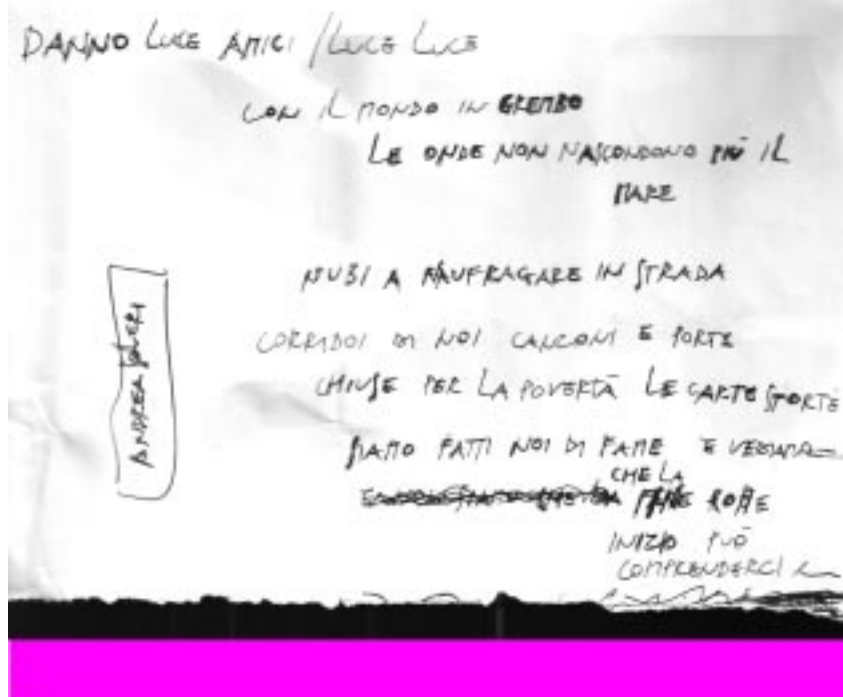 DANNO LUCE AMICI / LUCE LUCE
CON IL MONDO IN GREMBO
LE ONDE NON NASCONDONO PIÙ IL
MARE
NUBI A NAUFRAGARE IN STRADA
CORRIDOI DI NOI CALCONI E PORTE
CHIUSE PER LA POVERTÀ LE CARTE SPORTE
SIAMO FATTI NOI DI FAME E
CHE LA
FINE COME
INIZIO PUÒ
COMPRENDERCI
ANDREA